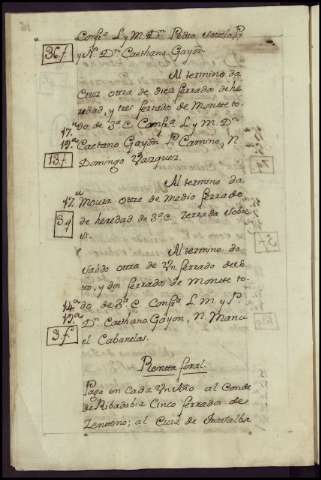 Confª L y M Dⁿ Pedro P
36 f y N. Dⁿ Caethano Gayon
Al termino da
Cruz otra de diez ferrado de he
redad, y tres ferrado de Monte to
17.ª do de 3ª C Confª L y M Dⁿ
19ªª Caetano Gayon P. Camino, N
13 f Domingo Vazquez.
Al termino da
17.ª Moura otro de Medio ferrado
39 de heredad de 3ª C. Zerrada sobre
si.
Al termino do
Valdo otra de Un ferrado de he
, y dos ferrados de Monte to
14ª do de 3ª C Confª L M y P
19ª Dⁿ Caethano Gayon, N Manu
3 f el Cabanelas.
Penta foral.
Paga en Cada Un Año al Conde
de Ribadabia Cinco ferrados de
Zenteno; al de